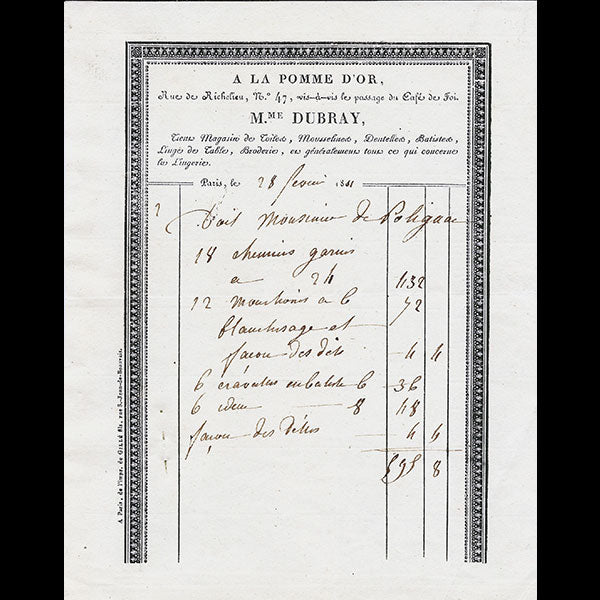 A LA POMME D'OR,
Rue de Richelieu, N.º 47, vis-à-vis le passage du Café de Foi.
M.ME DUBRAY,
Tient Magasin de Toiles, Mousselines, Dentelles, Batistes,
Linge de Tables, Broderie, et généralement tous ce qui concerne
la Lingerie.
Paris, le 28 fevrier 1811
Doit Monsieur de Polignac
18 chemises garnis
a 24 432
12 mouchoirs a 6 72
blanchissage et
façon des dits 4 4
6 cravattes en batiste 6 36
6 idem 8 48
façon des dittes 4 4
595 8
A Paris, de l'Impr. de GILLÉ fils, rue S.-Jean-de-Beauvais.